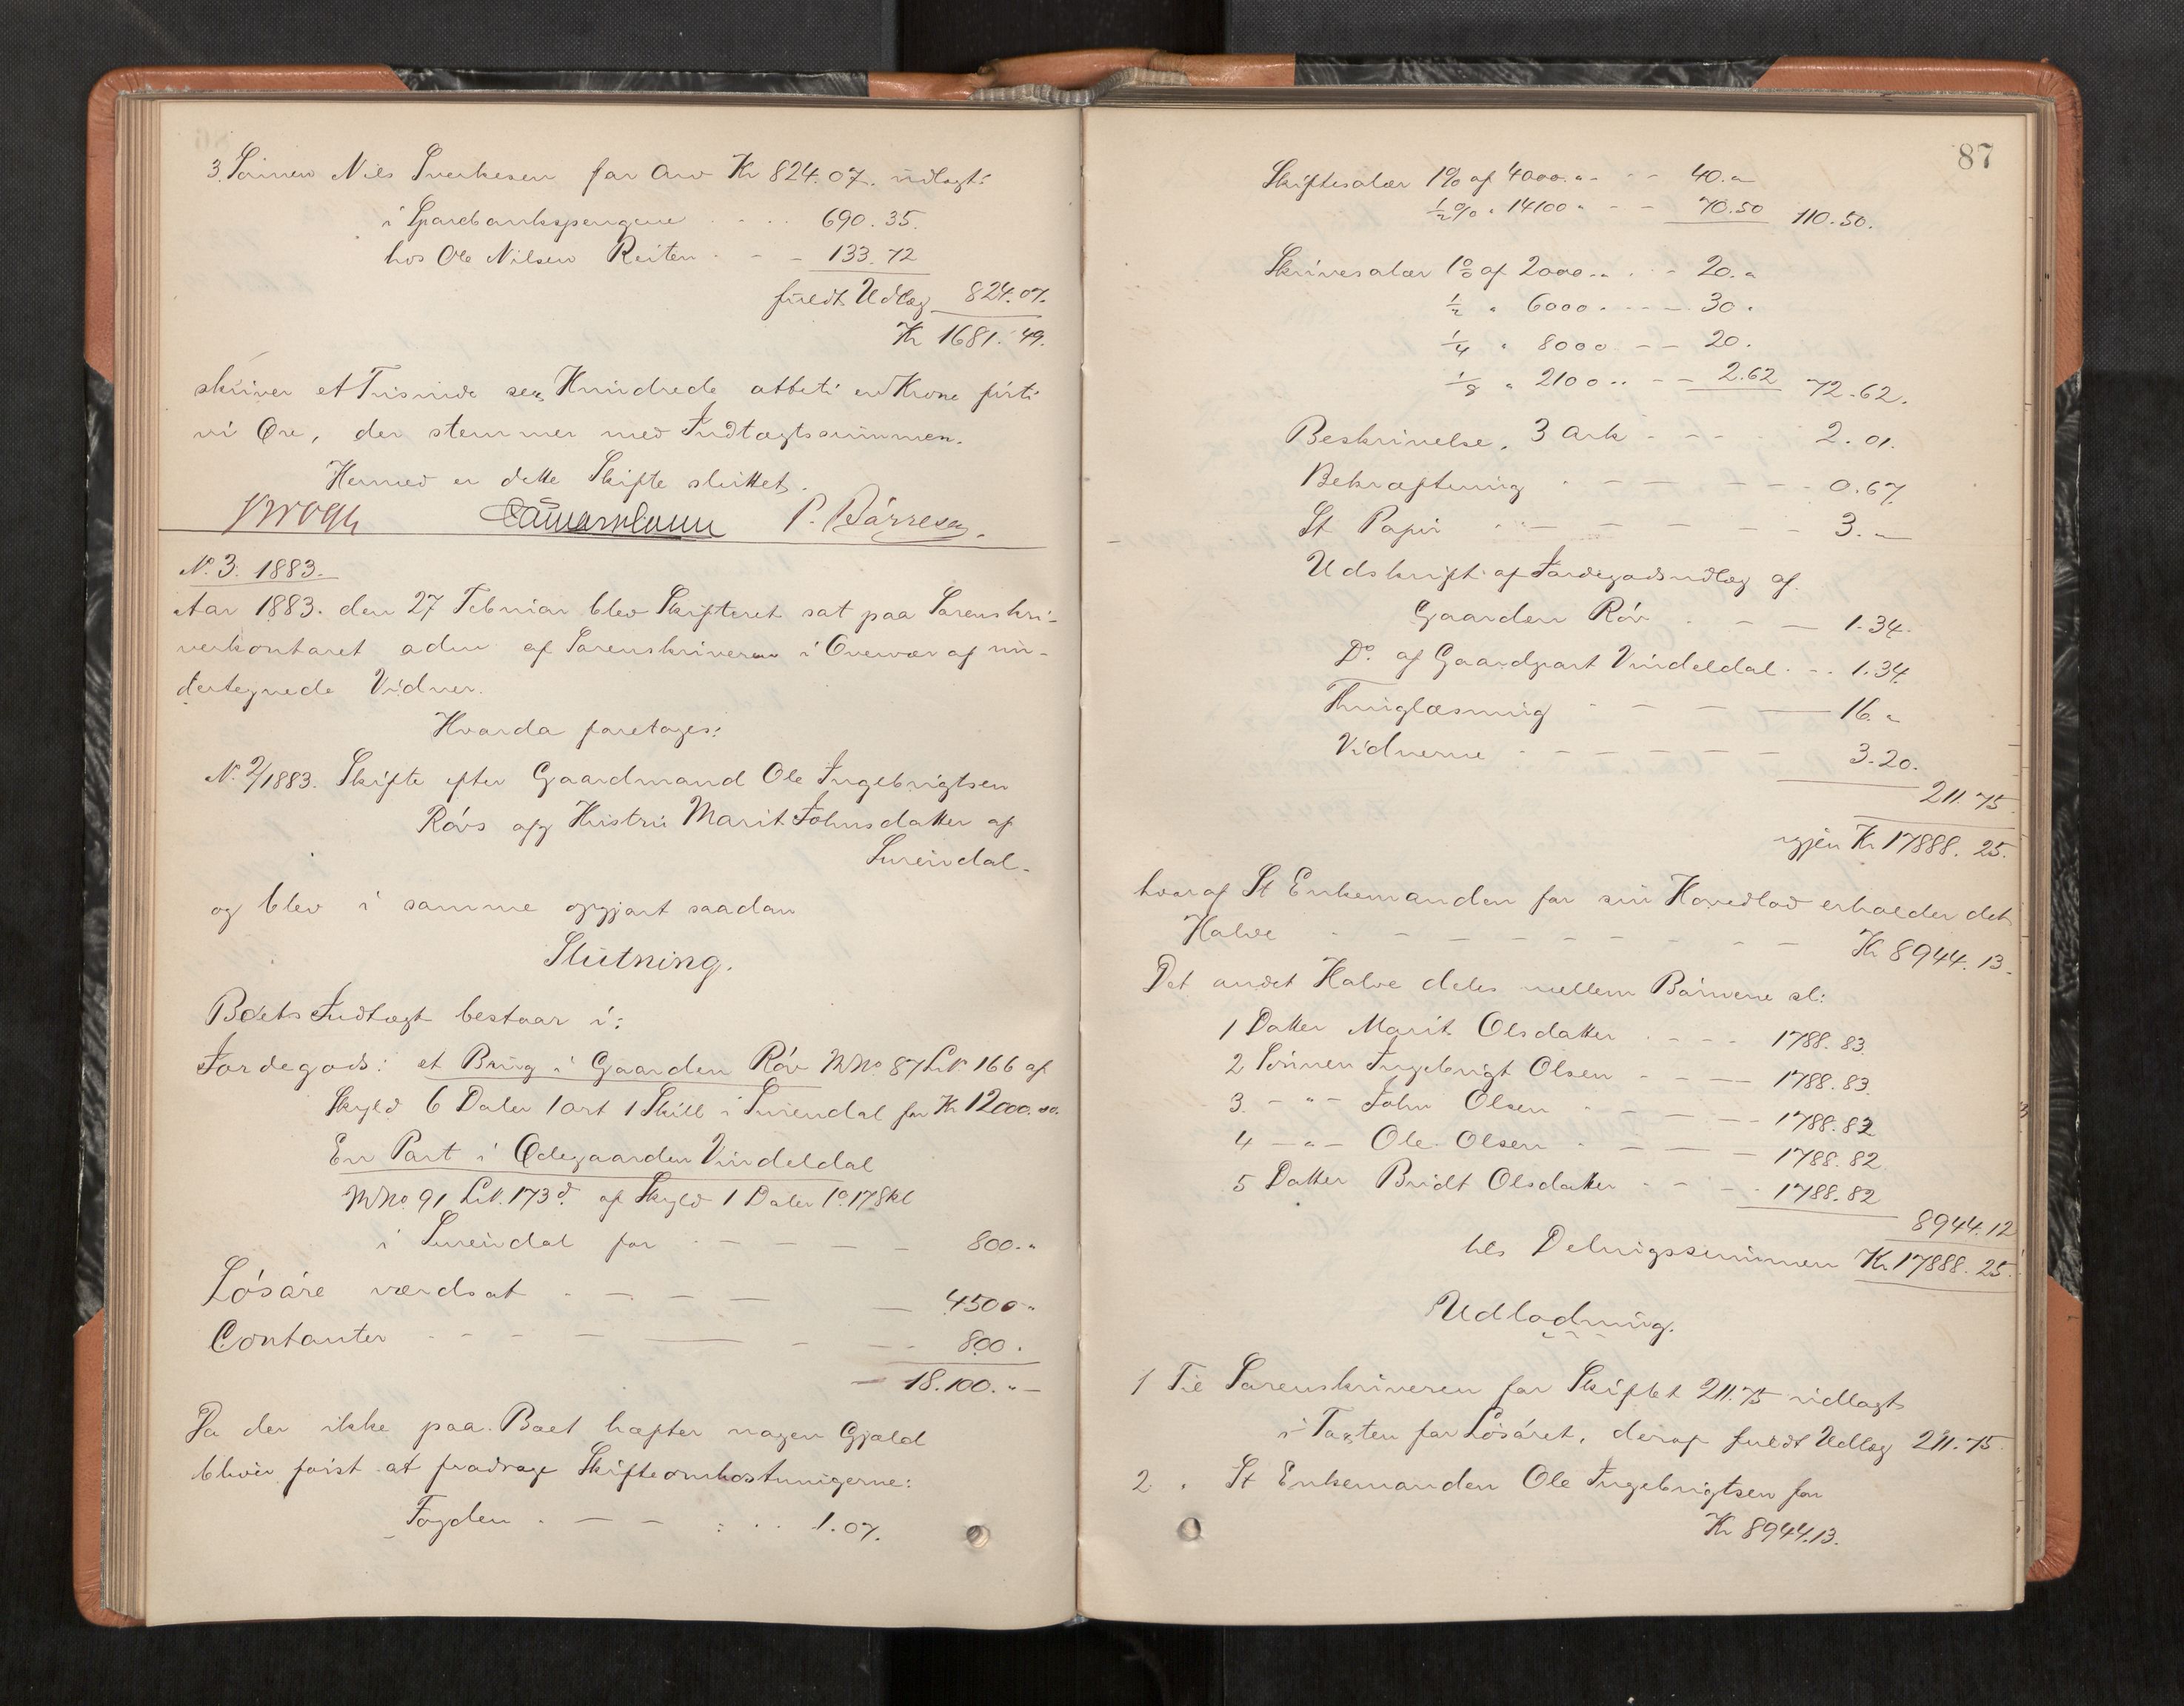 3. Sönnen Nils Sverkesen for Arv Kr 824.07. udlagt:
i Sparebankspengene 690.35.
hos Ole Nilsen Reiten 133.72
fuldt Udlæg 824.07.
Kr 1681.49.
skriver et Tusinde sex Hundrede otteti en Krone firti
ni Øre, der stemmer med Indtægtssummen.
Hermed er dette Skifte sluttet.
Krogh P. Börresen.
No. 3. 1883.
Aar 1883. den 27 Februar blev Skifteret sat paa Sorenskri-
verkontoret adm. af Sorenskriveren i Overvær af un-
dertegnede Vidner.
Hvorda foretoges:
No. 2/1883. Skifte efter Gaardmand Ole Ingebrigtsen
Røvs afg Hustru Marit Johnsdatter af
Surendal.
og blev i samme opgjort saadan
Slutning.
Boets Indtægt bestaar i:
Jordegods: et Brug i Gaarden Röv MNo 87 LN 166 af
Skyld 6 Daler 1 ort 1 Skill i Surendal for Kr 12000.00.
En Part i Ødegaarden Vindeldal
MNo. 91 LN. 173d. af Skyld 1 Daler 1o. 17 Skl
i Surendal for 800."
Lösöre værdsat 4500"
Contanter 800.
18.100."
Da der ikke paa Boet hæfter nogen Gjæld
bliver först at fradrage Skifteomkostningerne:
Fogden 1.07.
87
Skiftesalær 1% af 4000." 40."
½% " 14100 " 70.50 110.50.
Skrivesalær 1% af 2000.. 20."
½ " 6000 30.
¼ " 8000 20.
⅛ " 2100 .. 2.62 72.62.
Beskrivelse, 3 Ark 2.01.
Bekræftning 0.67.
St Papir 3."
Udskrift af Jordegodsudlæg af
Gaarden Röv 1.34.
Do. af Gaardpart Vindeldal 1.34.
Thinglæsning 16."
Vidnerne 3.20.
211.75
igjen Kr 17888.25.
hvoraf St Enkemanden for sin Hovedlod erholder det
Halve Kr 8944.13.
Det andet Halve deles mellem Börnene sl:
1 Datter Marit Olsdatter 1788.83.
2 Sönnen Ingebrigt Olsen 1788.83.
3. - " - John Olsen 1788.82
4 - " - Ole Olsen 1788.82
5 Datter Bridt Olsdatter 1788.82
8944.12
bls Delingssummen Kr 17888.25.
Udlodning.
1 Til Sorenskriveren for Skiftet 211.75 udlagt
i Taxten for Lösöret, derop fuldt Udlæg 211.75
2 . St Enkemanden Ole Ingebrigtsen for
Kr 8944.13.